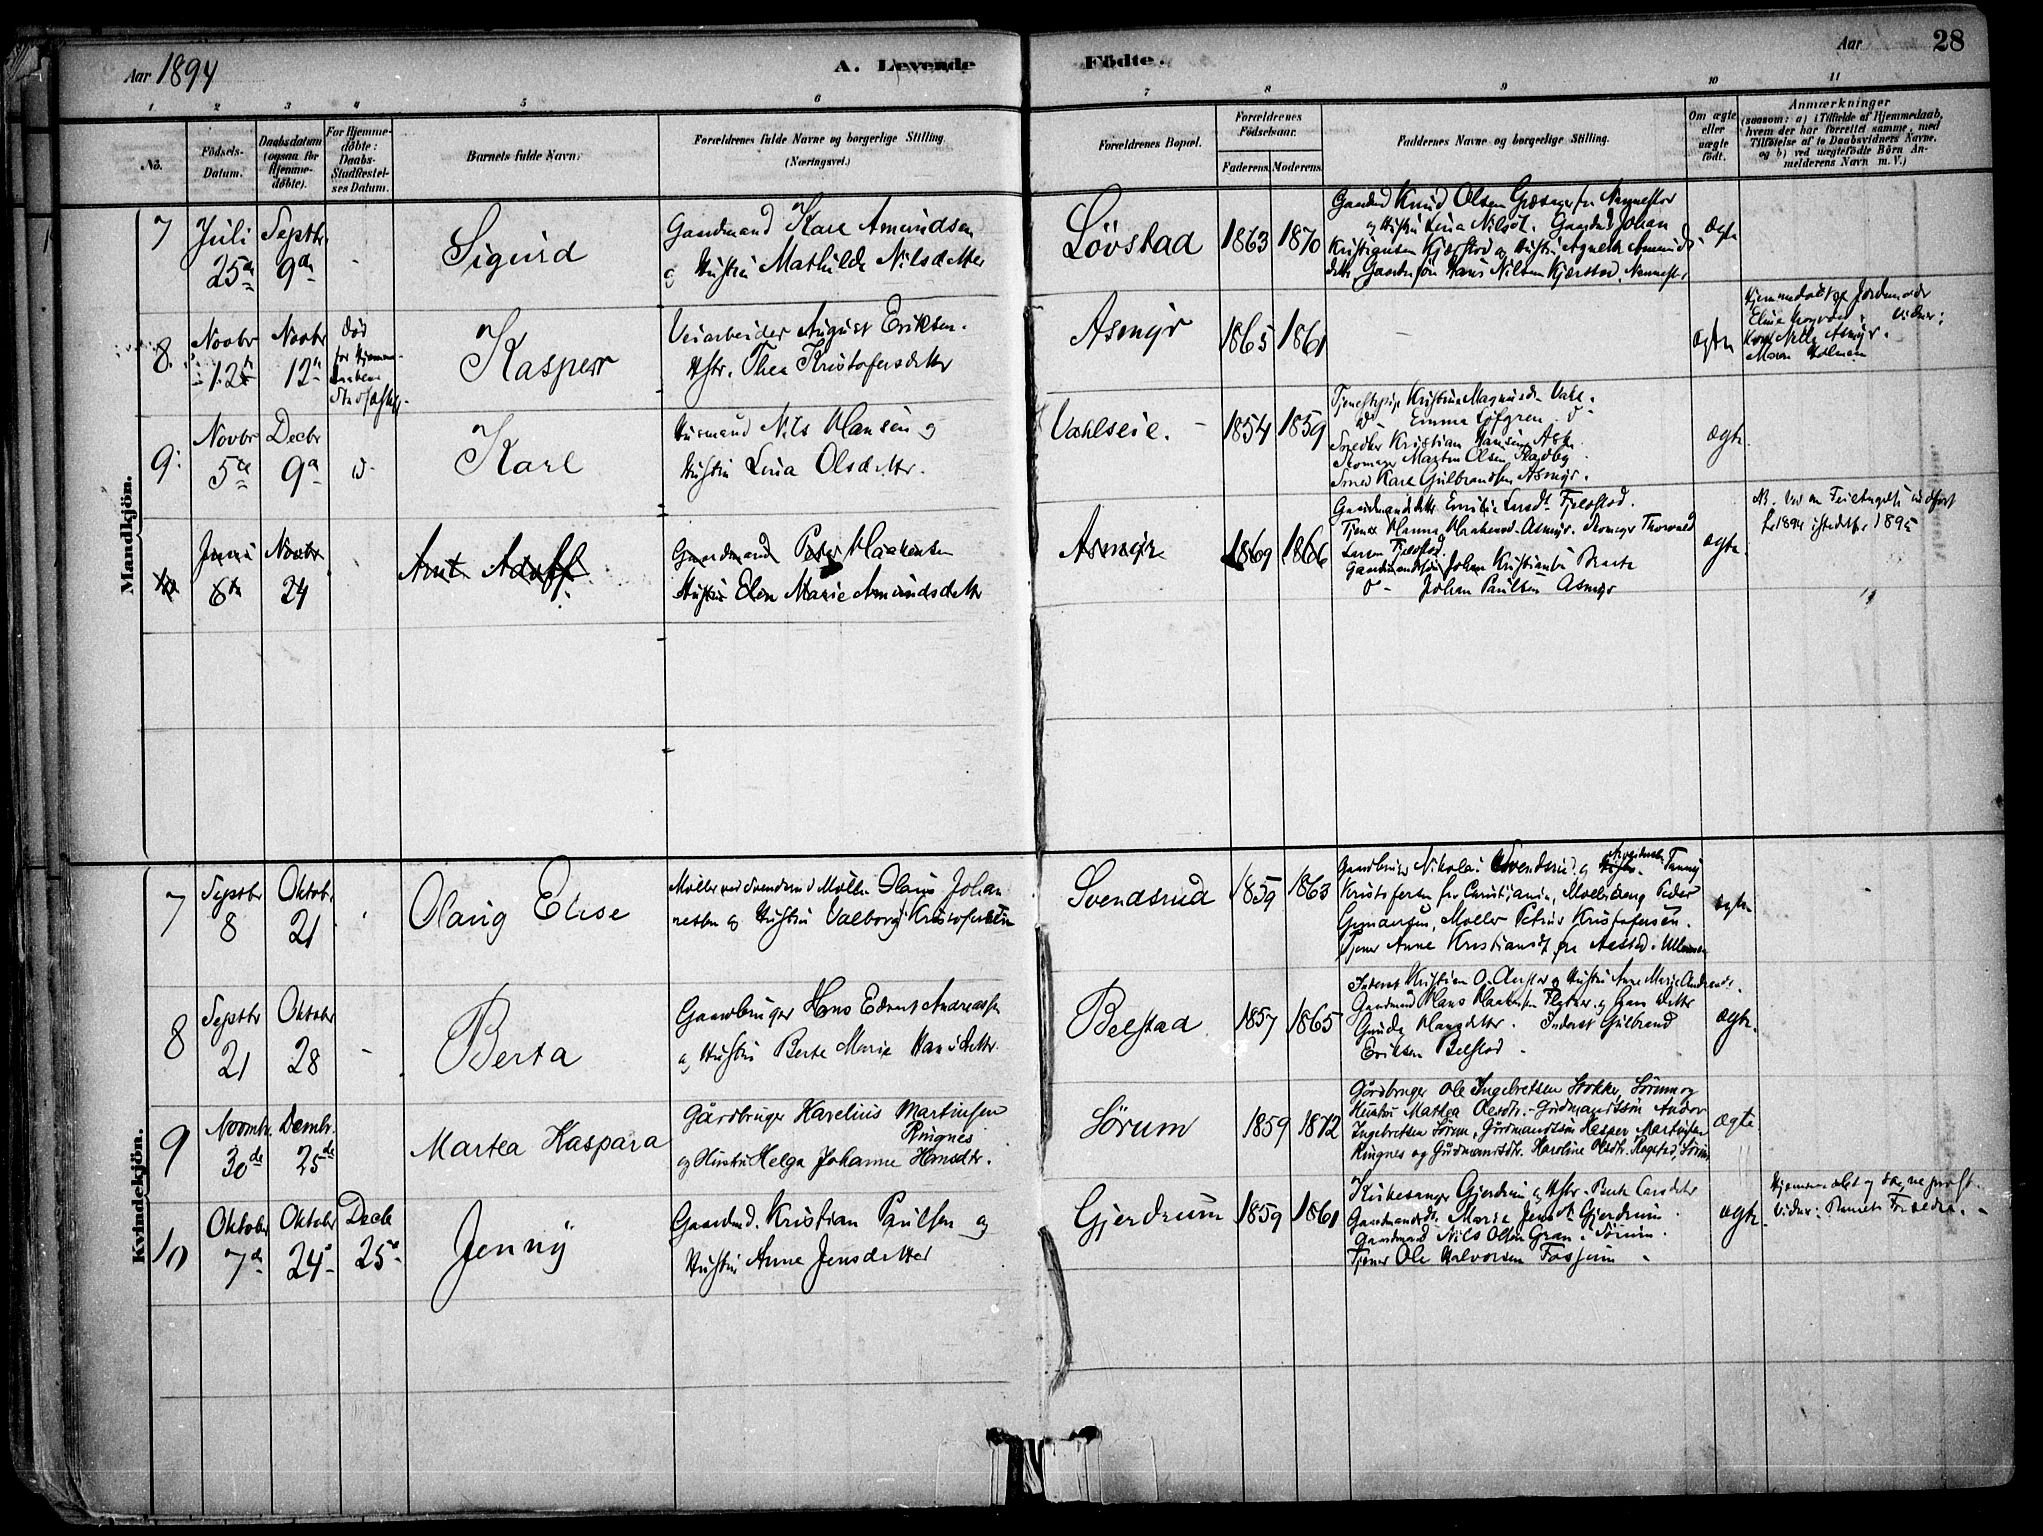 Aar 1894
A. Levende Födte.
Aar 28
1 2 3 4 5 6 7 8 9 10 11
No.
Födsels-Datum.
Daabsdatum (ogsaa for Hjemme-døbte).
For Hjemme-døbte: Daabs-Stadfæstel-ses Datum.
Barnets fulde Navn.
Forældrenes fulde Navne og borgerlige Stilling.
(Næringsvei.)
Forældrenes Bopæl.
Forældrenes Födselsaar.
Faderens. Moderens.
Faddernes Navne og borgerlige Stilling.
Om ægte eller uægte født.
Anmærkninger
(saasom: a) i Tilfælde af Hjemmedaab,
hvem der har forrettet samme, med
Tilföielse af to Daabsvidners Navne.
og b) ved uægtefödte Börn An-
melderens Navn m. V.)
Mandkjön.
7 Juli 25de Septbr. 9de
Sigurd
Gaardmand Karl Amundsen
og Hustru Mathilde Nilsdatter
Løvstad 1863 1870
Gaardmd Knud Olsen fra Nannestad
og Hustru Lina Nilsdt. Gaardmd Johan
Kristiansen Kjærstad og Hustru Agnethe Amunds-
datter Gaardmsøn Hans Nilsen Kjærstad, Nannest.
ægte
8. Novbr 12te Novbr 12te
død før Hjemme-daabens Stadfæst.
Kasper
Veiarbeider August Eriksen.
Hstr. Thea Kristofersdatter
Asmyr 1865 1861
ægte
Hjemmedøbt af Jordemoder
Vidner:
Asmyr.
Maren Holmen
9. Novbr 5te Decbr 9de d-
Karl
Husmand Nils Hansen og
Hustru Lina Olsdatter.
Vahlseie. 1854 1859
Tjenestepige Kristine Magnusd. Vahl.
d- Emma Löfgren. d-
Snedker Kristian Hansen Ask.
Skomager Martin Olsen
Smed Karl Gulbrandsen Asmyr.
ægte
10 Juni 8de Novbr 24
Arnt Adolf
Gaardmand Peter Haakensen
Hustru Elen Marie Amundsdatter
Asmyr 1869 1866
Gaardmandsdatter Emilie Larsdt. Fjelstad.
Tjener Hanna Haakensd. Asmyr. Skomager Thorvald
Larsen Fjelstad.
Gaardmandssøn Johan Kristiansen Braate
d- Johan Paulsen Asmyr
ægte.
NB. Ved en Feiltagelse indført
for 1894 istedetfor 1895
Kvindekjön.
7 Septbr 8 Oktobr. 21
Olaug Elise
Møller ved Svendsrud Mølle Olaus Johan
nessen og Hustru Valborg Kristofersen
Svendsrud 1859 1863
Gaardbruger Nikolai Svendsrud og Fanny
Kristofersen fra Christiania, Peder
Gundersen, Møller Petrus Kristofersen.
Tjener Anne Kristiansdt. fra
ægte
8 Septbr 21 Oktober 28
Berta
Gaardbruger Hans Edvart Andreassen
og Hustru Berte Marie Hansdatter.
Belstad 1857 1865
Inderst Kristian O. og Hustru Anne Marie Andreasd.
Gaardmand Hans Haakensen og hans datter
Gunda Hansdatter. Inderst Gulbrand
Eriksen Belstad.
ægte.
9 Novembr. 30de Dcembr. 25de
Martea Kaspara
Gårdbruger Karelius Martinsen
Ringnes
og Hustru Helga Johanne Hansdtr.
Sörum 1859 1872
Gårdbruger Ole Ingebretsen Stokker, Sörum og
Hustru Mattea Olesdtr. - Gårdmandssön Andor
Ingebretsen Sörum, Gårdmandssön Kasper Martinsen
Ringnes og Gårdmandsdtr. Karoline Olesdtr. Ragstad, Sörum
ægte
10 Oktober 7de Oktober 24 Decbr 25de
Jenny
Gaardmd. Kristian Paulsen og
Hustru Anne Jensdatter
Gjerdrum 1859 1861
Kirkesanger Gjerdrum og Hstr. Berte Larsdatter
Gaardmandsdt. Marie Jensdt. Gjerdrum.
Gaardmand Nils Olsen Gran i Sörum.
Tjener Ole Halvorsen Fossum
ægte.
Hjemmedøbt af Sogneprest.
Vidner: Barnets Forældre.